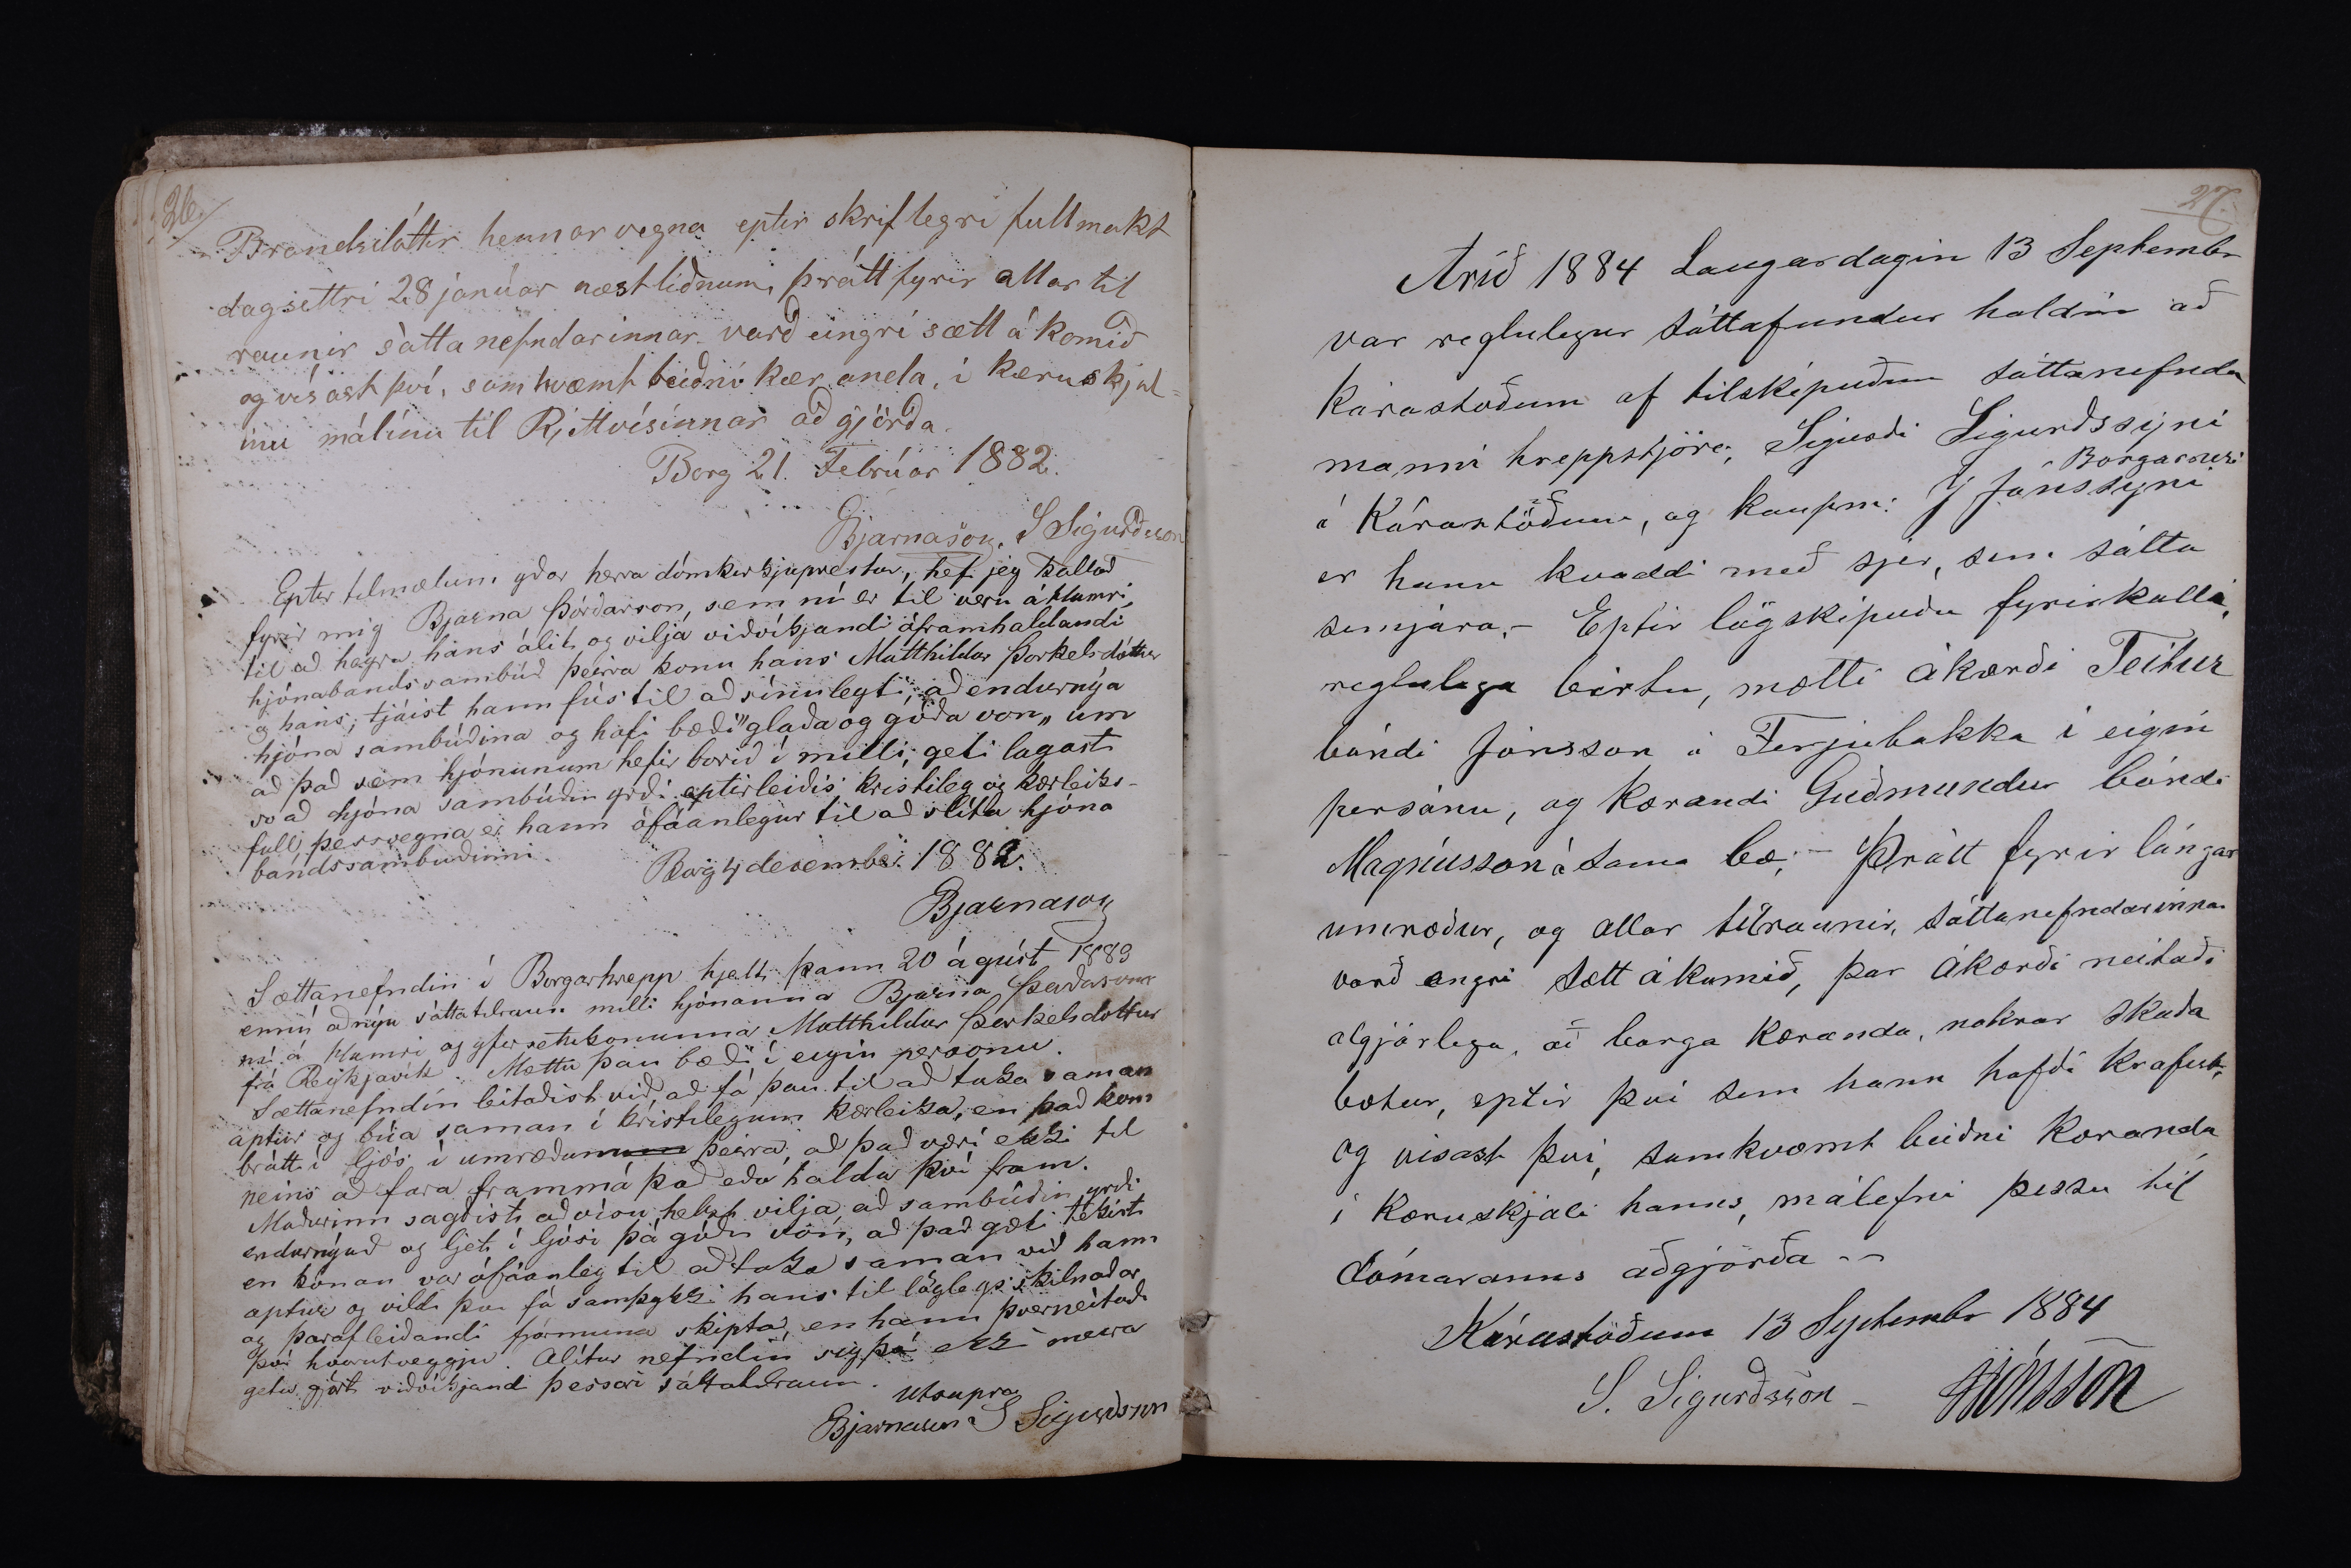 26.
Brandsdóttir hennar vegna eptir skriflegri fullmakt
dagsettri 28 janúar næstliðnum, þrátt fyrir allar til
raunir sáttanefndarinnar varð eingri sætt á komið
og vísast því, samkvæmt beiðni kæranda, í kæruskjal-
inu málinu til Rjettvísinnar aðgjörða.
Borg 21. Febrúar 1882.
Bjarnason, S Sigurðsson
Eptir tilmælum yðar herra dómkirkjuprestur, hef jeg kallað
fyrir mig Bjarna Þórðarson, sem nú er til veru á Hamri,
til að heyra hans álit og vilja viðvíkjandi áframhaldandi
hjónabandssambúð þeirra konu hans Matthildar Þorkelsdóttur
og hans; tjáist hann fús til að sínu leyti, að endurnýa
hjóna sambúðina og hafi bæði "glaða og góða von" um
að það sem hjónunum hefir borið í milli, geti lagast
svo að hjóna sambúðin yrði eptirleiðis kristileg og kærleiks-
full, þessvegna er hann ófáanlegur til að slíta hjóna
bandssambúðinni.
Borg 4 desember 1882.
Bjarnason
Sættanefndin í Borgarhrepp hjelt þann 20 ágúst 1883
ennú að nýu sáttatilraun milli hjónanna Bjarna Þórðarsonar
nú á Hamri og yfirsetukonunnar Matthildar Þorkelsdottur
frá Reykjavík. Mættu þau bæði í eigin personu.
Sættanefndin leitaðist við, að fá þau til að taka saman
aptur og búa saman í kristilegum kærleika, en það kom
brátt í ljós í umræðum þeirra, að það væri ekki til
neins að fara frammá það eða halda því fram.
Maðurinn sagðist að vísu helst vilja, að sambúðin yrði
endurnýuð og ljet í ljósi þá góðu von, að það gæti tekist
en konan var ófáanleg til að taka saman við hann
aptur og vildi þar fá samþykki hans til löglegs skilnaðar
og þarafleiðandi fjármuna skipta, en hann þverneitaði
því hvorutveggju. Alítur nefndin sig þá ekki meira
getu gjört viðvíkjandi þessari sáttatilraun.
Utsupra
Bjarnason S Sigurdsson
27.
Arið 1884 Laugardagin 13 Septembr
var reglulegur sáttafundur haldin að
Kárastöðum af tilskipuðum sáttanefnda
manni hreppstjóra, Sigurði Sigurðssyni
Borgarnesi
á Kárastöðum, og kaupm: J Jónssyni
er hann kvaddi með sjer, sem sátta
semjara. – Eptir lögskipuðu fyrirkalli,
reglulega birtu, mætti ákærði Teitur
bóndi Jónsson á Ferjubakka í eigin
persónu, og kærandi Guðmundur bóndi
Magnússon á sama bæ; – Þrátt fyrir lángar
umræður, og allar tilraunir, sáttanefndarinnar
varð engri sætt ákomið, þar ákærði neitaði
algjörlega, að borga kæranda, nokrar skaða
bætur, eptir því sem hann hafði krafist,
og vísast því, samkvæmt beiðni kæranda
í kæruskjali hanns, málefni þessu til
dómaranns aðgjörða –
Kárastöðum 13 Septembr 1884
S. Sigurðsson – JJónsson